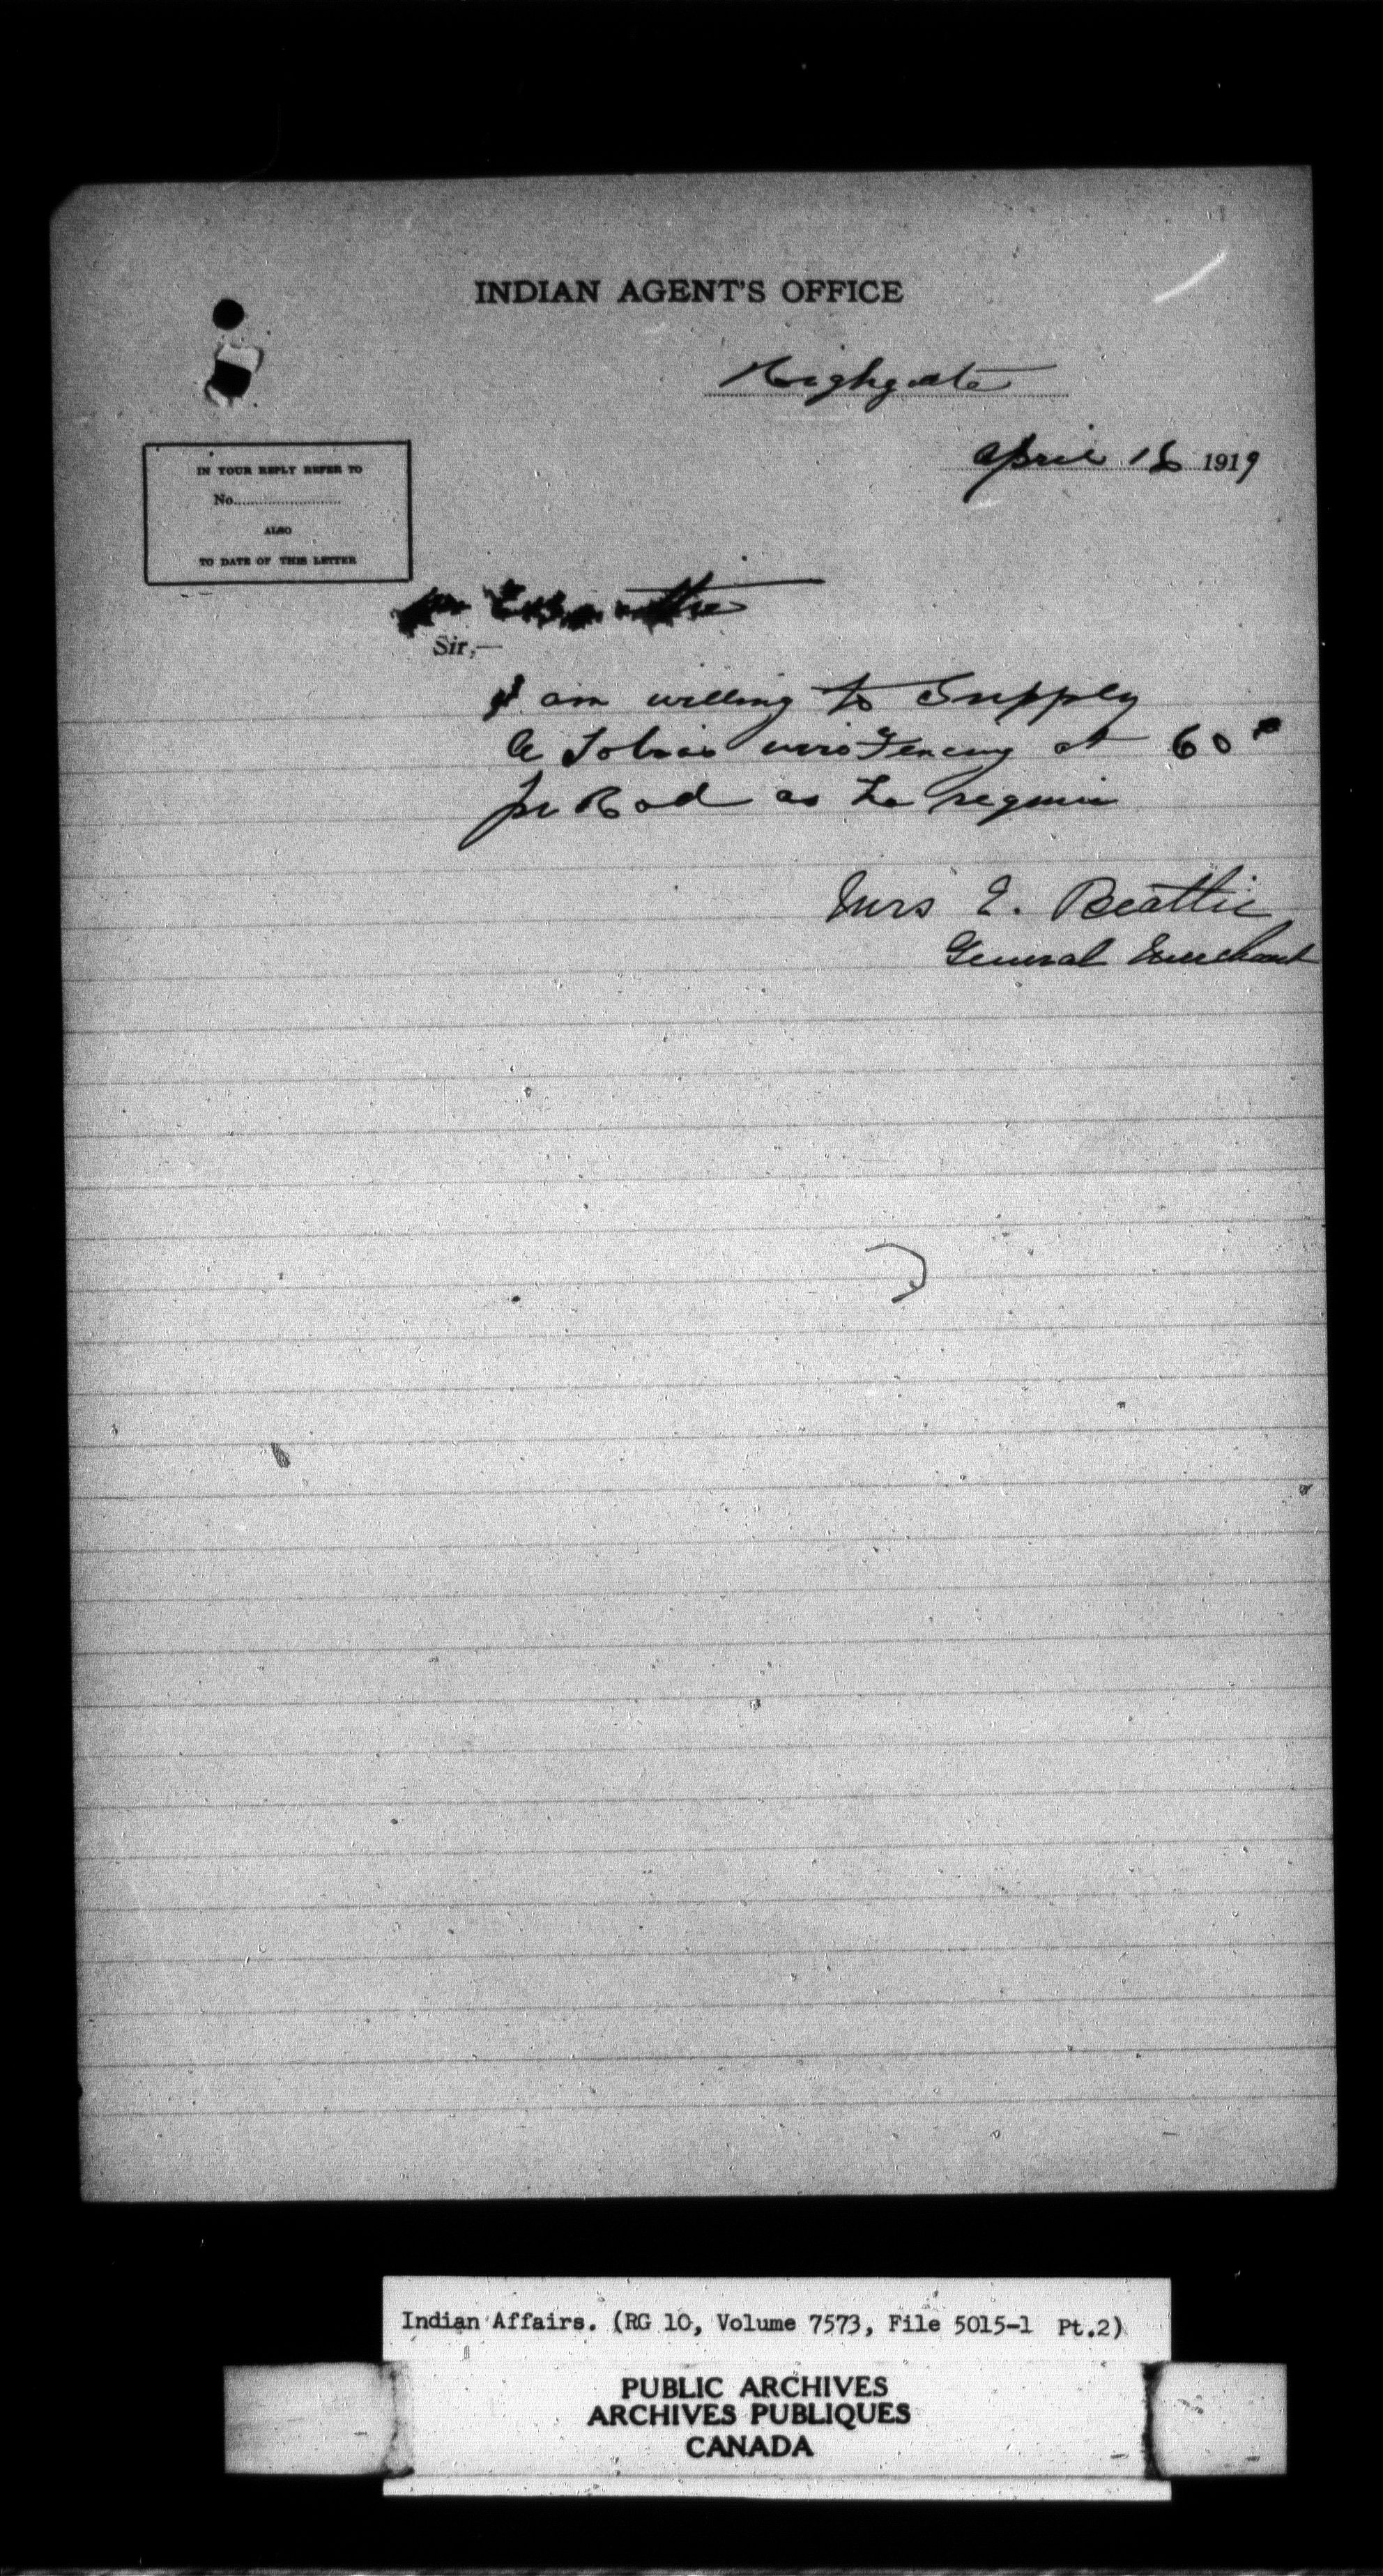 INDIAN AGENT'S OFFICE
Highgate
April 16 1919
IN YOUR REPLY REFER TO
No.
ALSO
TO DATE OF THIS LETTER
Sir,—
I am willing to Supply
A Tobias wire Fencing at 60
per Rod as he require
Mrs E. Beattie
General Merchant
Indian Affairs. (RG 10, Volume 7573, File 5015-1 Pt.2)
PUBLIC ARCHIVES
ARCHIVES PUBLIQUES
CANADA